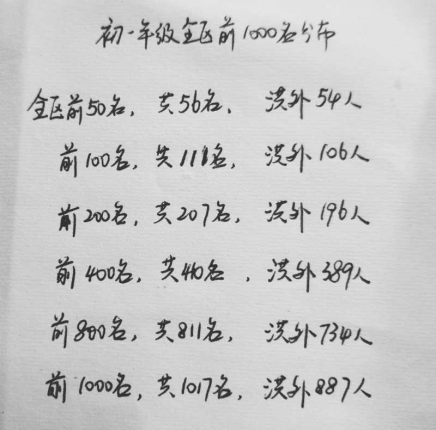 初一年级全区前1000名分布
全区前50名，共56名，洪外54人
前100名，共111名，洪外106人
前200名，共207名，洪外196人
前400名，共410名，洪外389人
前800名，共811名，洪外734人
前1000名，共1017名，洪外887人